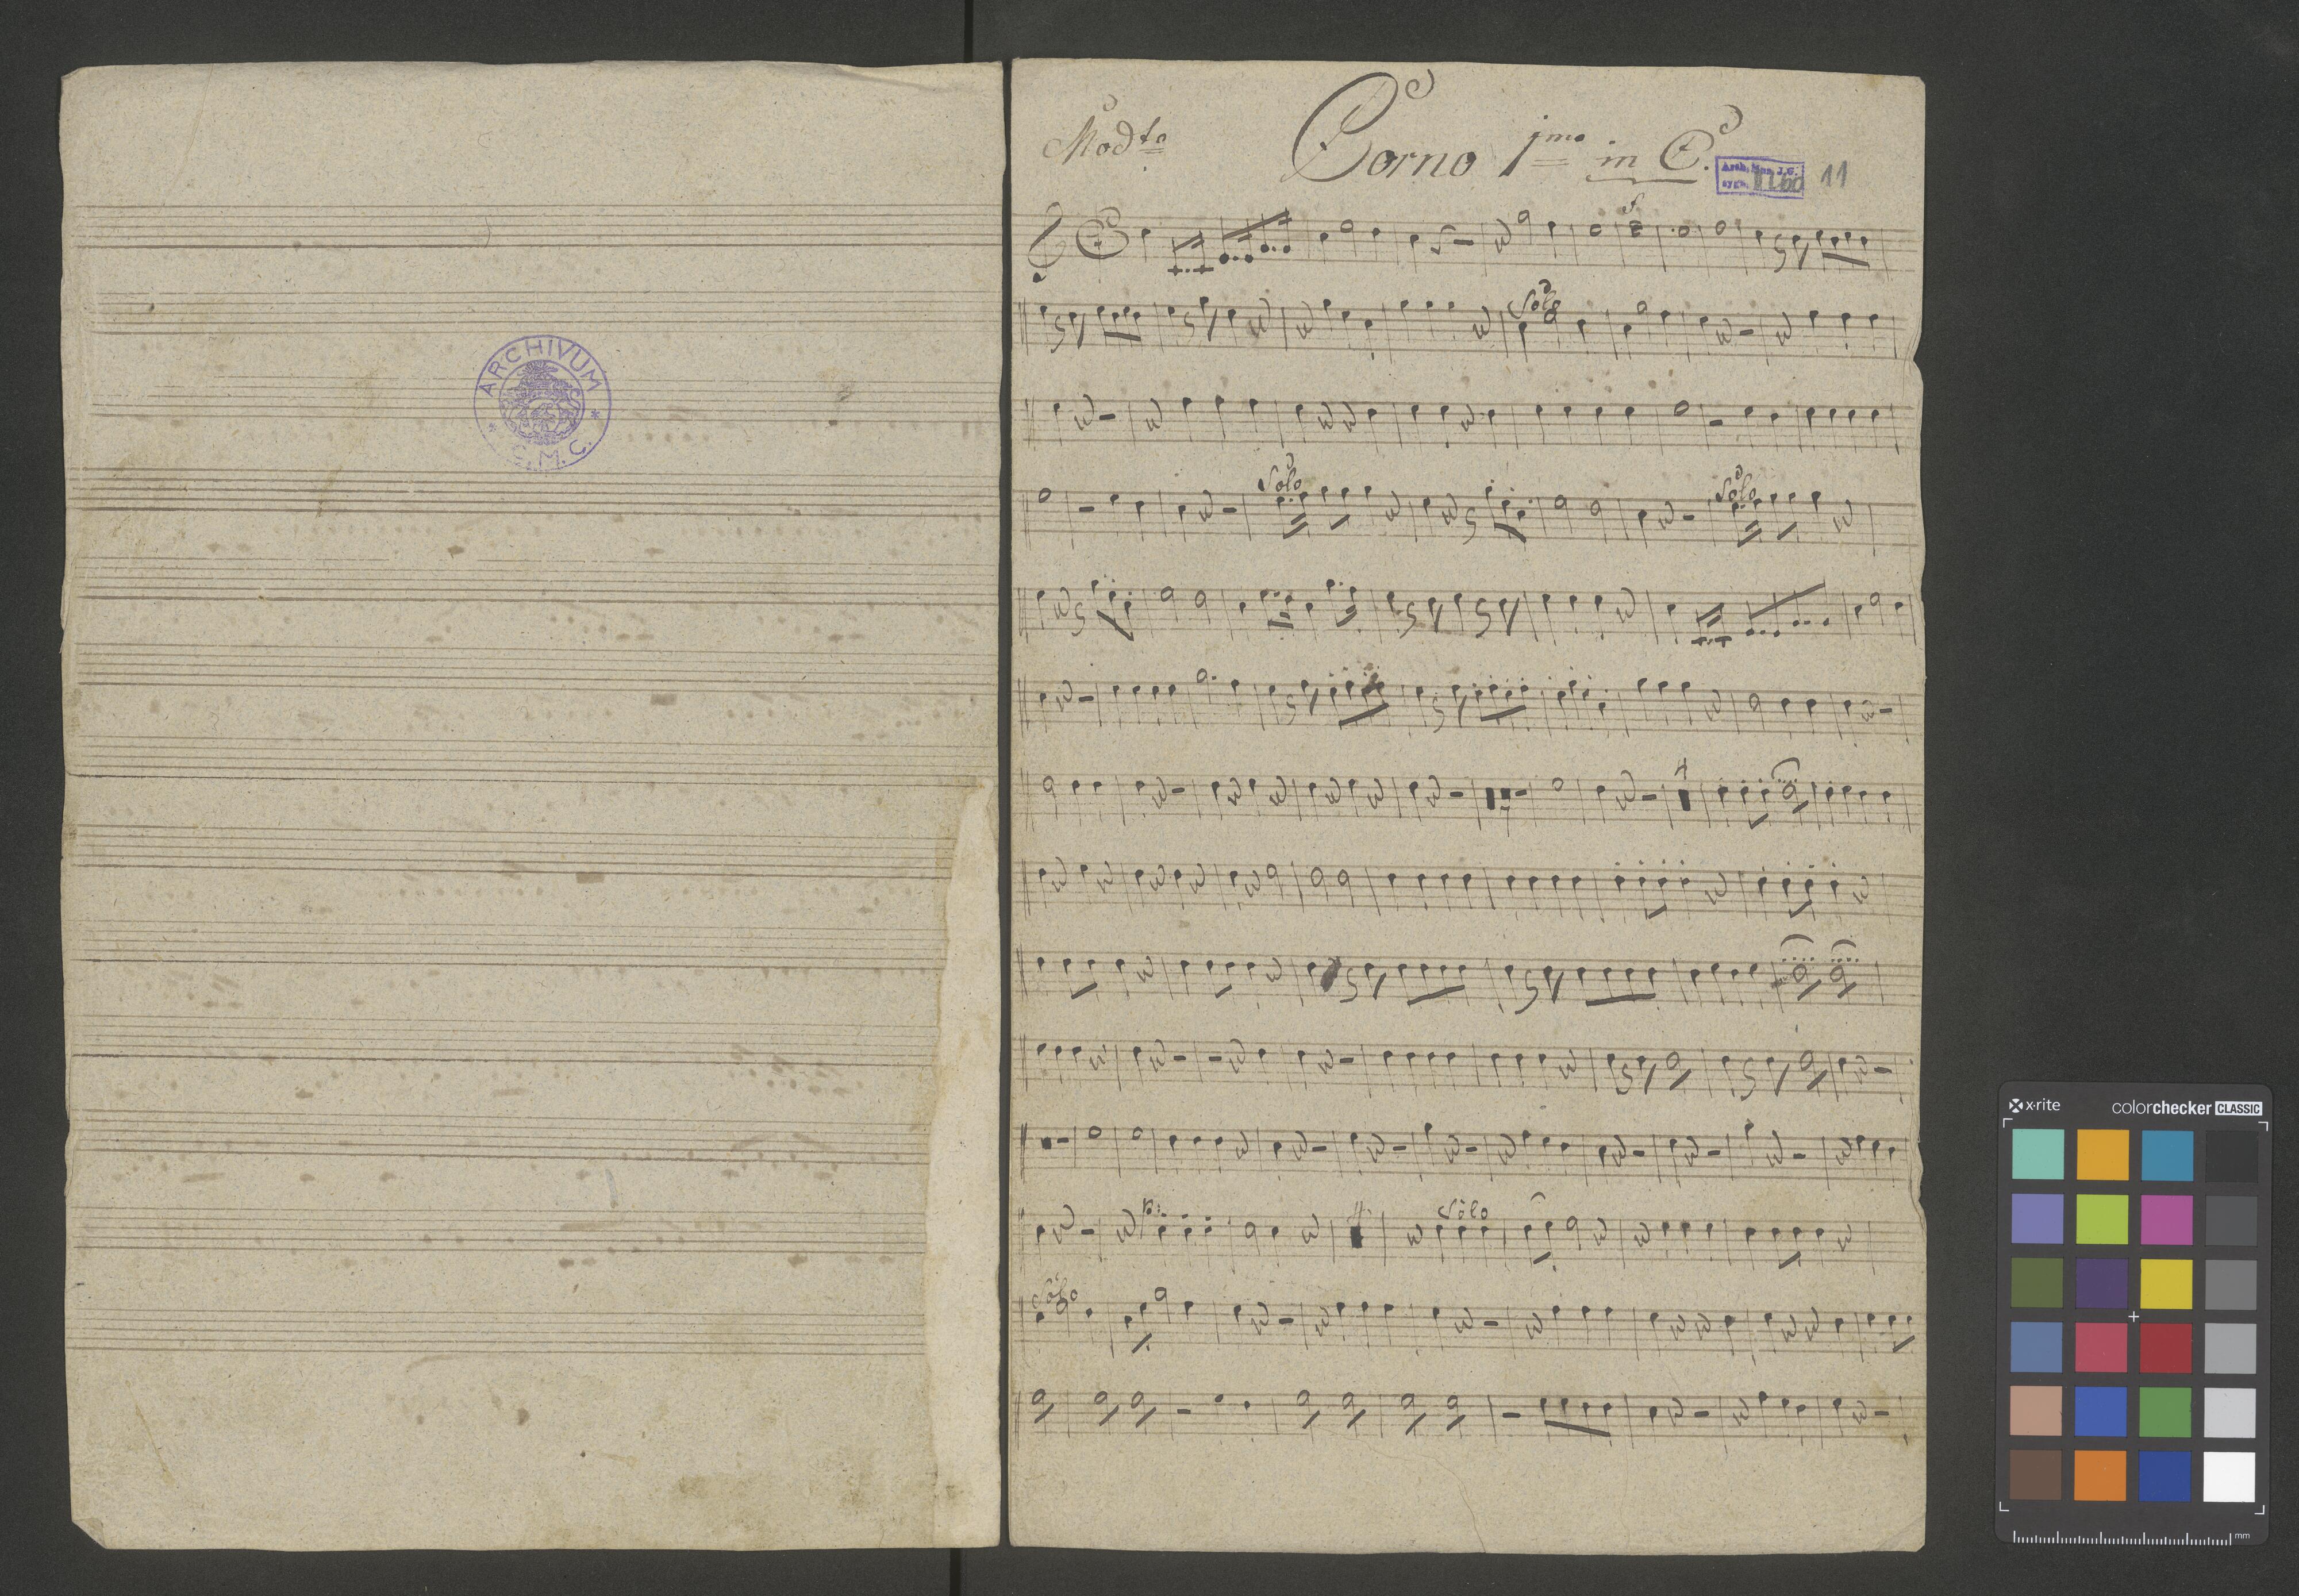 ARCHIVUM
* S.M.C. *
Modto
Corno 1mo in C.
Arch. Mus. J. G.
sygn.
11
Solo
Solo
Solo
4
p:
Solo
Solo
x-rite
colorchecker CLASSIC
mm